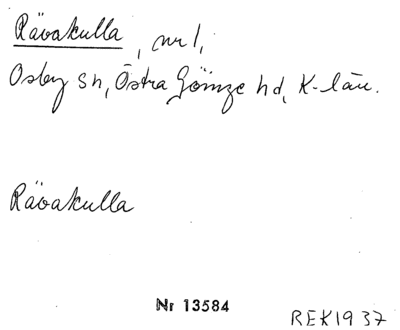 Rävakulla, nr 1,
Osby sn, Östra Göinge hd, K-län.
Rävakulla
Nr 13584
REK1937